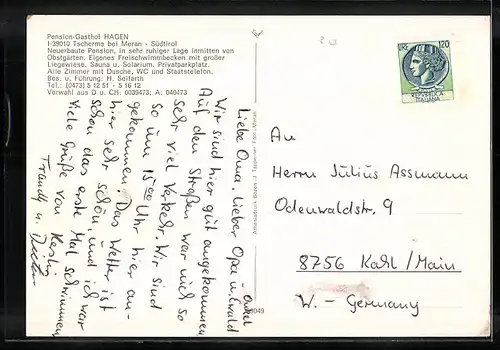 Pension-Gasthof HAGEN
I-39010 Tscherms bei Meran - Südtirol
Neuerbaute Pension, in sehr ruhiger Lage inmitten von
Obstgärten. Eigenes Freischwimmbecken mit großer
Liegewiese. Sauna u. Solarium. Privatparkplatz.
Alle Zimmer mit Dusche, WC und Staatstelefon.
Bes. u. Führung: H. Seifarth
Tel.: (0473) 5 12 51 - 5 16 12
Vorwahl aus D u. CH: 0039473; A: 040473
Liebe Oma, lieber Opa u.
Onkel Ewald
Wir sind hier gut angekommen
Auf den Straßen war nich so
sehr viel Verkehr. Wir sind
so um 15.00 Uhr hier an-
gekommen. Das Wetter ist
hier sehr schön, und ich war
schon das erste Mal schwimmen
Viele Grüße von Kerstin
Traudl u. Dieter
LIRE 120
REPUBBLICA
ITALIANA
An
Herrn Julius Assmann
Odenwaldstr. 9
8756 Kahl/Main
W.-Germany